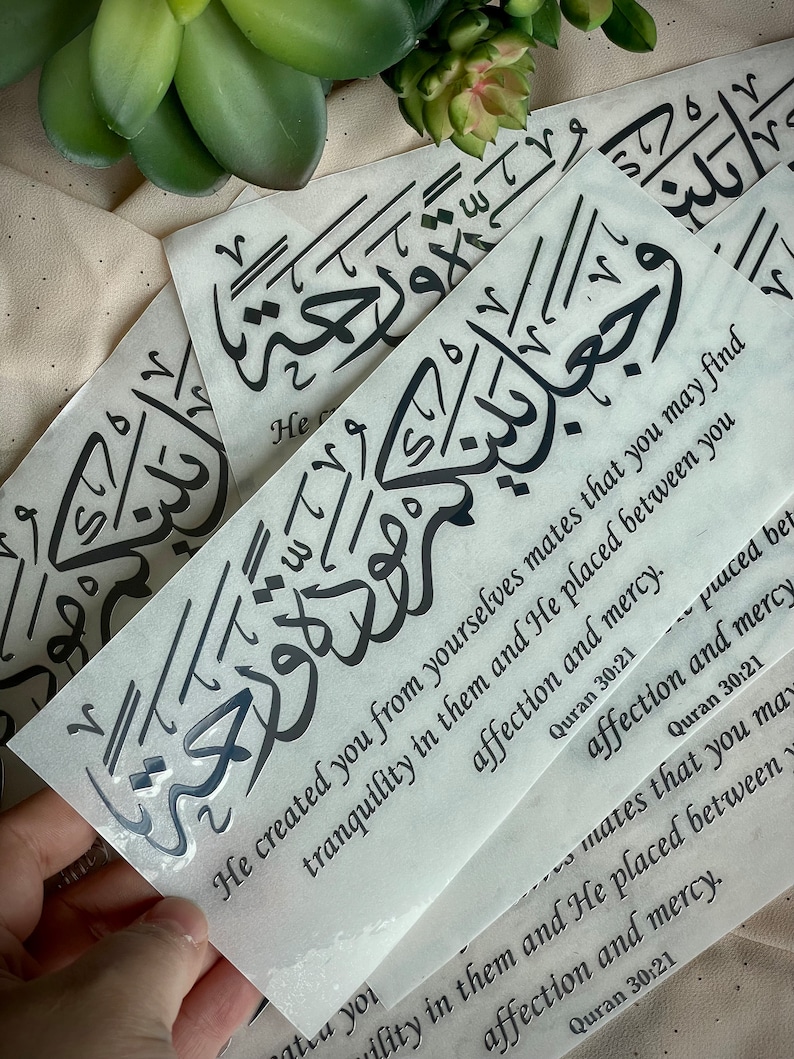 وجعل بينكم مودة ورحمة
He created you from yourselves mates that you may find
tranquility in them and He placed between you
affection and mercy.
Quran 30:21
ورحمة
بينكم
He
بينكم
He placed
affection and mercy
Quran 30:21
mates that you may
tranquility in them and He placed between
affection and mercy.
Quran 30:21